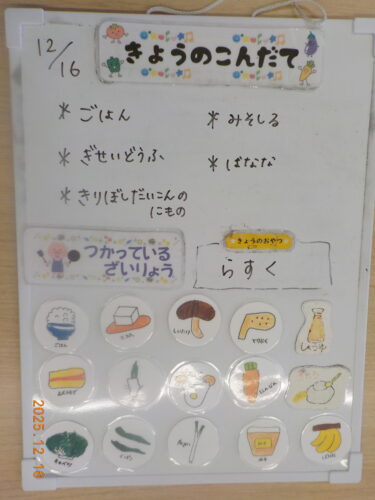 12/16
きょうのこんだて
* ごはん
* みそしる
* ぎせいどうふ
* ばなな
* きりぼしだいこんの
にもの
つかっている
ざいりょう
きょうのおやつ
らすく
ごはん
しいたけ
とりにく
しょうゆ
にんじん
キャベツ
ばなな
2025.12.16